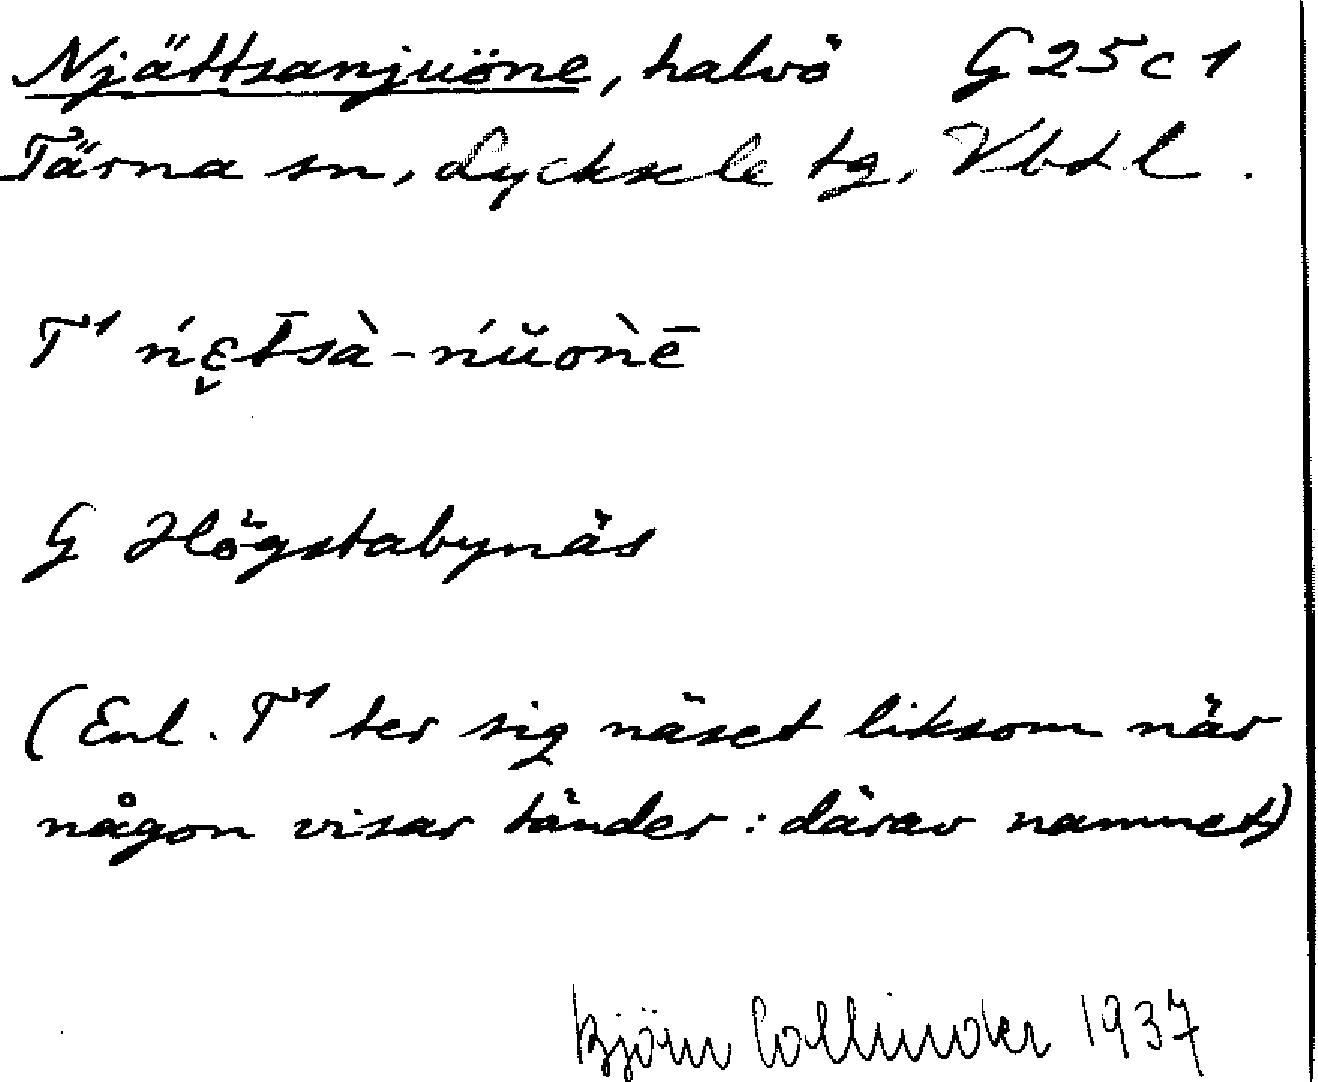 Njättsanjuöne, halvö G25c1
Tärna sn, Lycksele tg, Vbtl.
T¹ ńɛ̮t̄sà-ńŭoǹē
G Högstabynäs
(Enl. T¹ ter sig näset liksom när
någon visar tänder: därav namnet)
Björn Collinder 1937